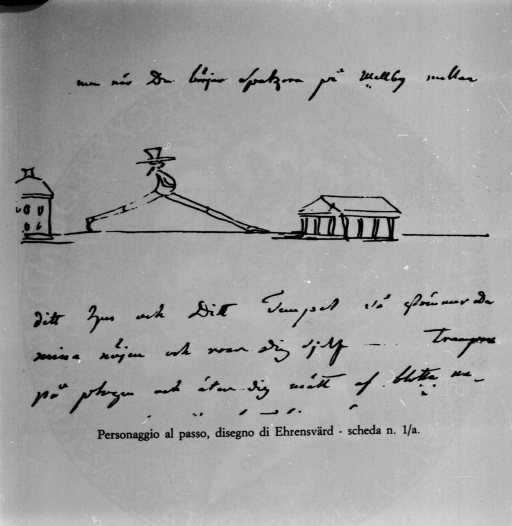 men när Du börjar spatzera på Mellby mellan
ditt hus och Ditt Tempel så glömmer Du
mina nöjen och roar dig sjelf
på och äter dig mätt af blotta
Personaggio al passo, disegno di Ehrensvärd - scheda n. 1/a.